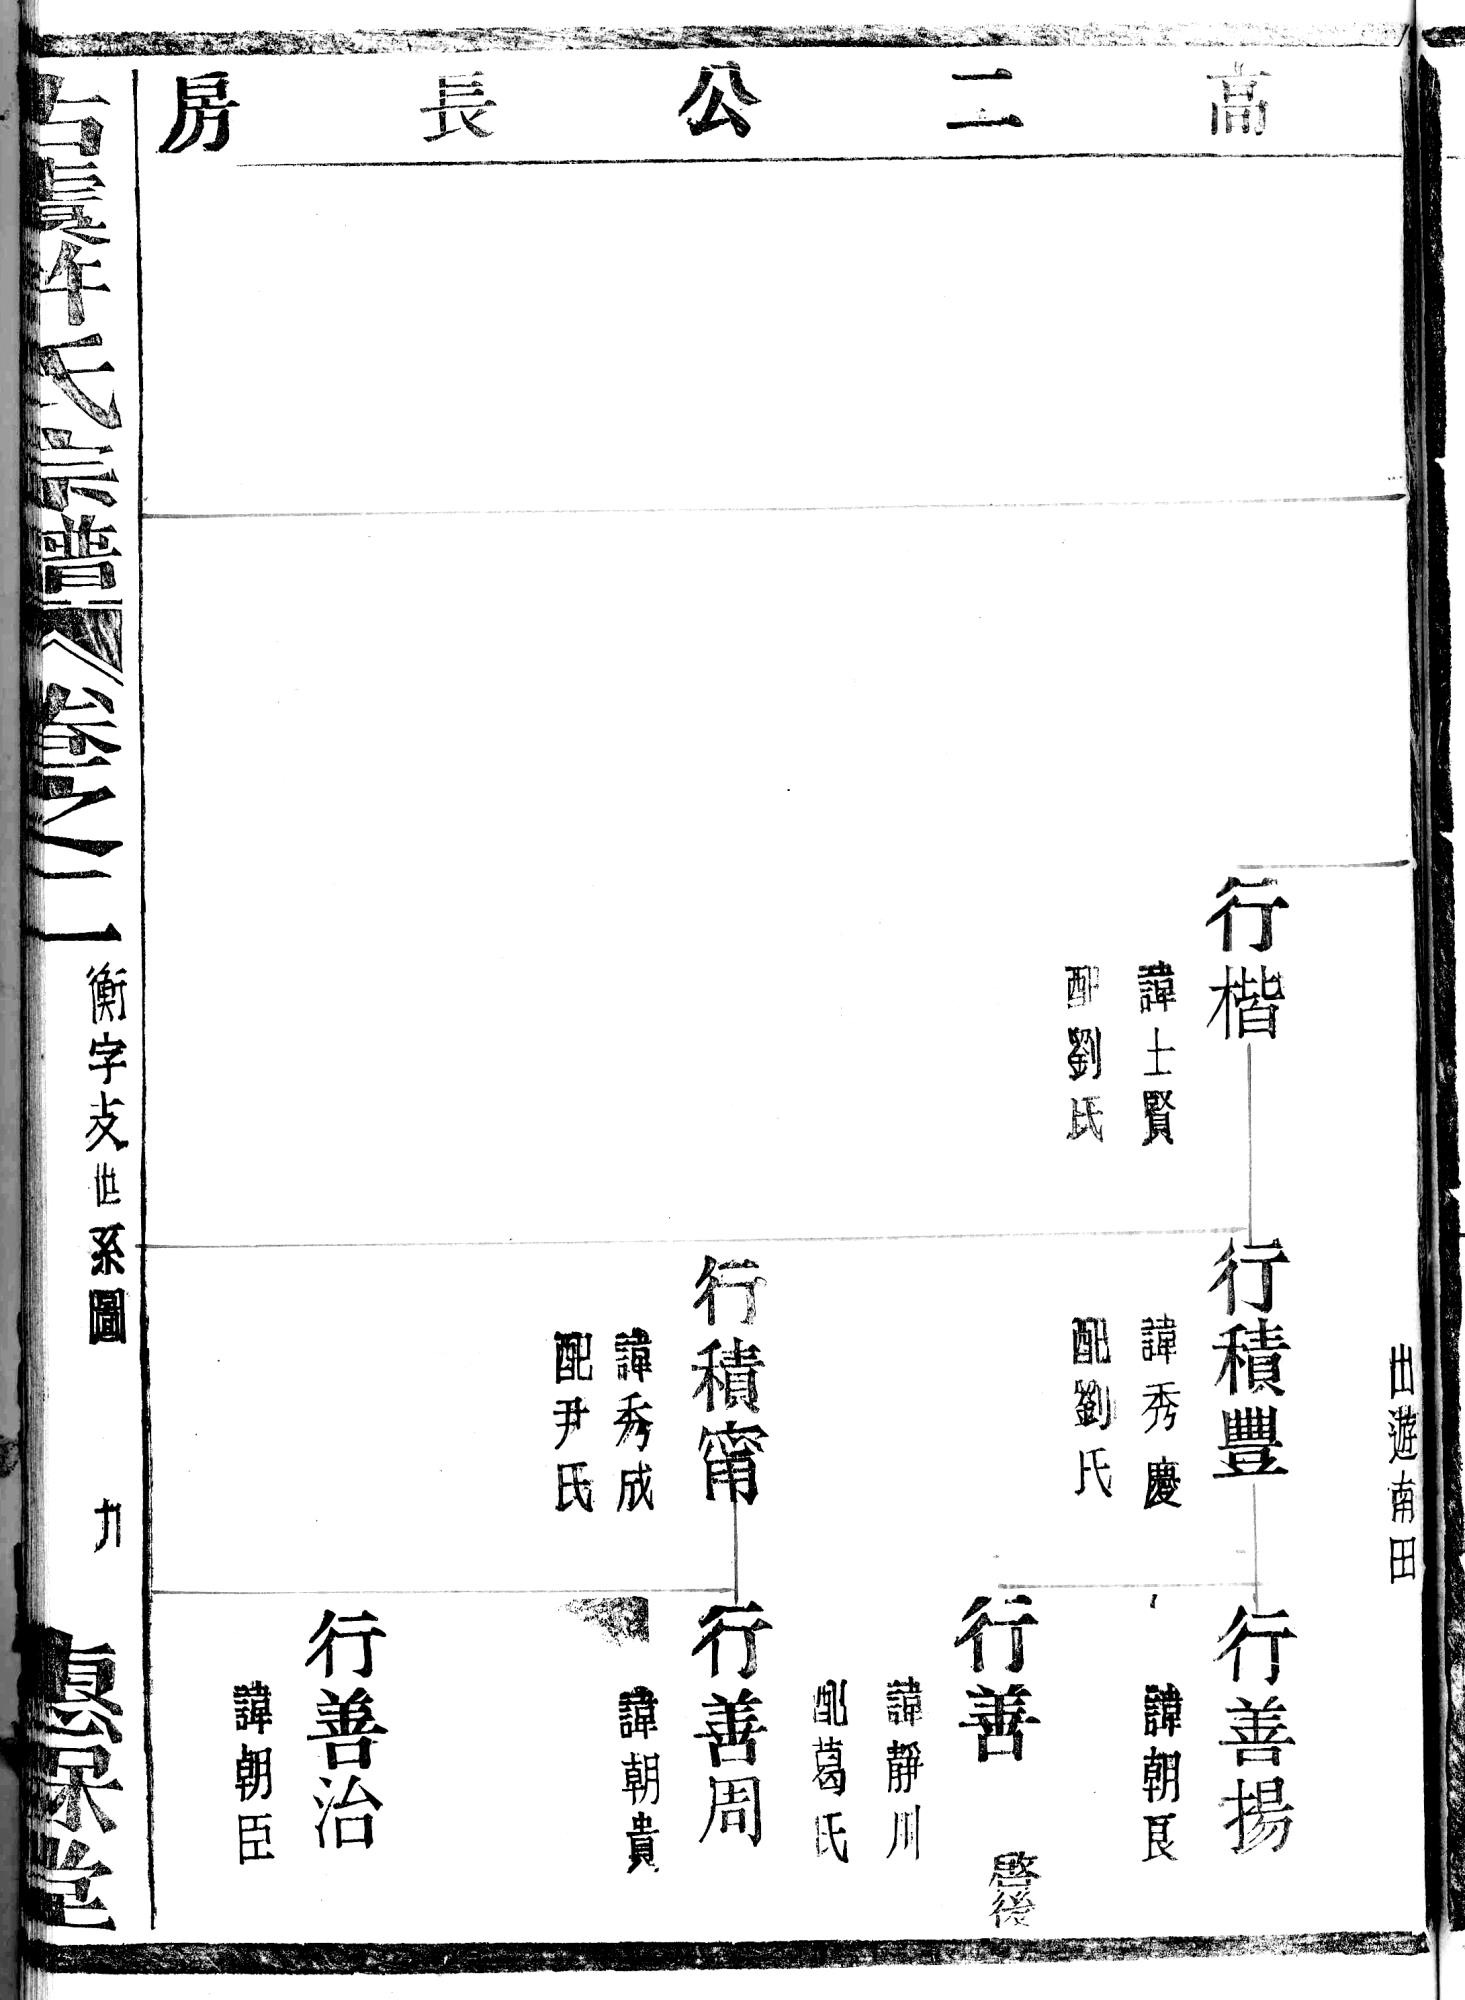 高二公長房
出遊南田
行楷
諱士賢
配劉氏
行積豐
諱秀慶
配劉氏
行積甯
諱秀成
配尹氏
行善揚
諱朝良
行善
啓後
諱靜川
配葛氏
行善周
諱朝貴
行善治
諱朝臣
古虞許氏宗譜
卷之二
衡字支世系圖
九
堂